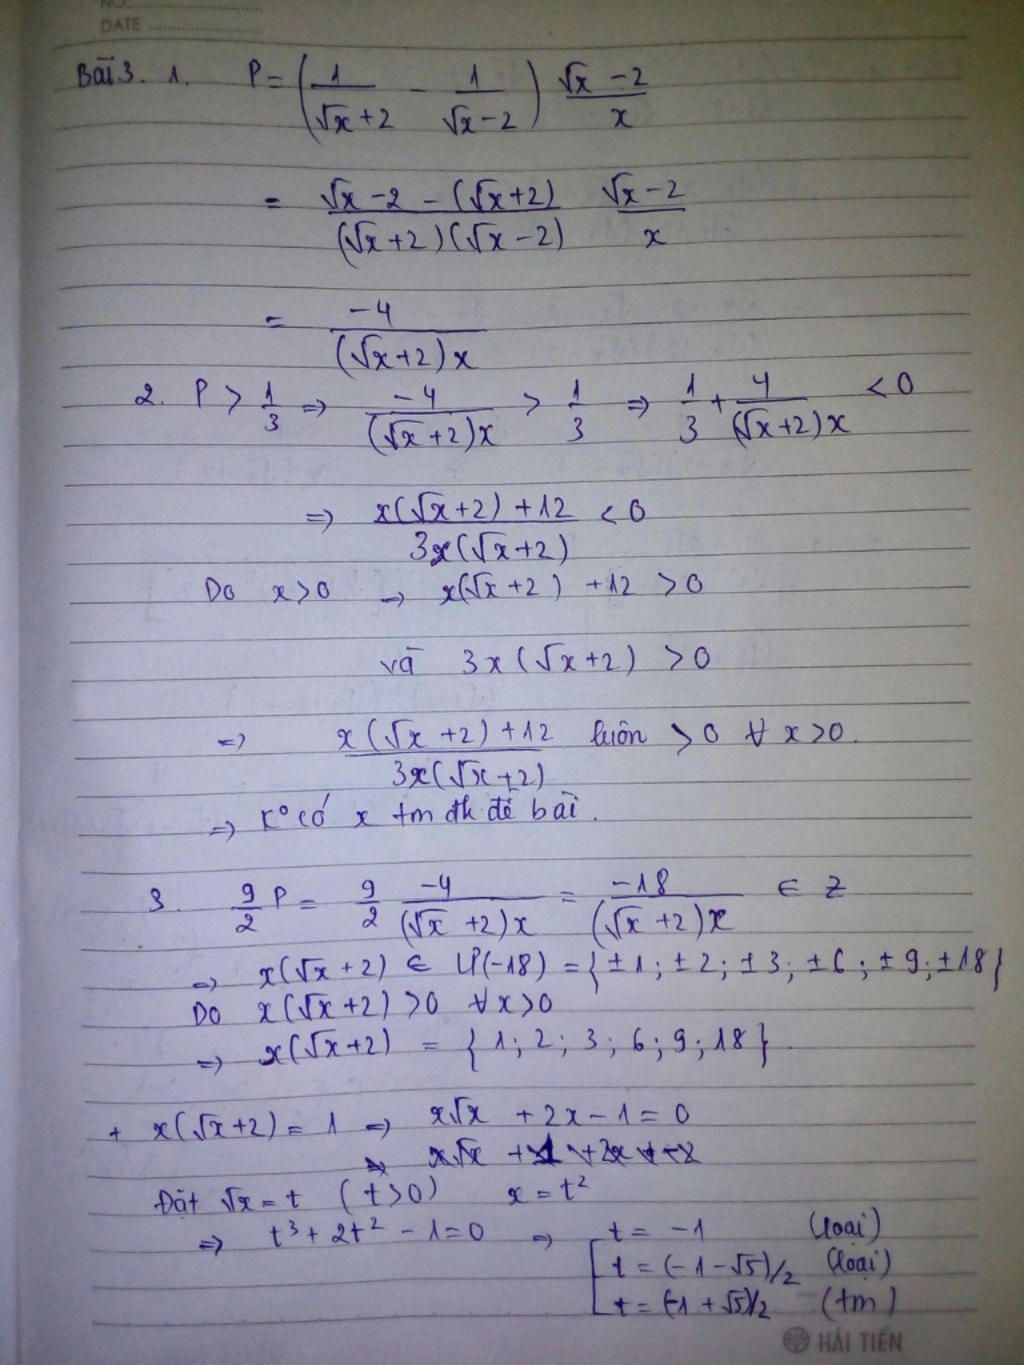 NO.
DATE
Bài 3. 1. P = (1/(√x+2) - 1/(√x-2)) (√x-2)/x
= (√x-2-(√x+2))/((√x+2)(√x-2)) (√x-2)/x
= -4/((√x+2)x)
2. P > 1/3 => -4/((√x+2)x) > 1/3 => 1/3 + 4/((√x+2)x) < 0
=> (x(√x+2)+12)/(3x(√x+2)) < 0
Do x>0 → x(√x+2)+12 >0
và 3x(√x+2) >0
=> (x(√x+2)+12)/(3x(√x+2)) luôn >0 ∀ x>0.
=> K° có x tm đk đề bài.
3. 9/2 P = 9/2 -4/((√x+2)x) = -18/((√x+2)x) ∈ Z
=> x(√x+2) ∈ Ư(-18) = {±1; ±2; ±3; ±6; ±9; ±18}
Do x(√x+2) >0 ∀x>0
=> x(√x+2) = {1; 2; 3; 6; 9; 18}.
+ x(√x+2) = 1 => x√x + 2x - 1 = 0
Đặt √x = t (t>0) x = t²
=> t³ + 2t² - 1 = 0 => [ t = -1 (loại)
t = (-1-√5)/2 (loại)
t = (-1+√5)/2 (tm)
HẢI TIẾN